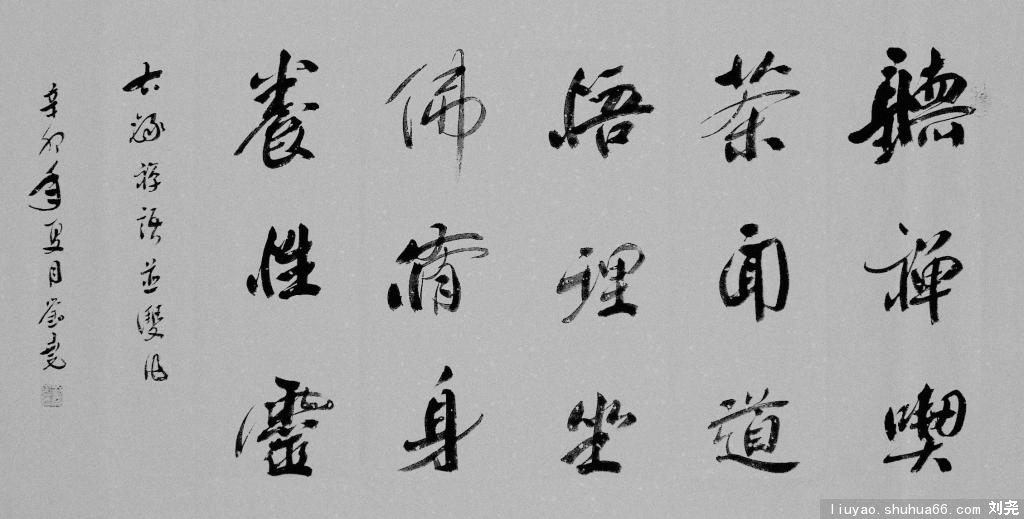 聽禪喫
茶聞道
悟理坐
佛脩身
養性靈
右錄禪語並雙
辛卯年夏月劉堯
liuyao.shuhua66.com 刘尧